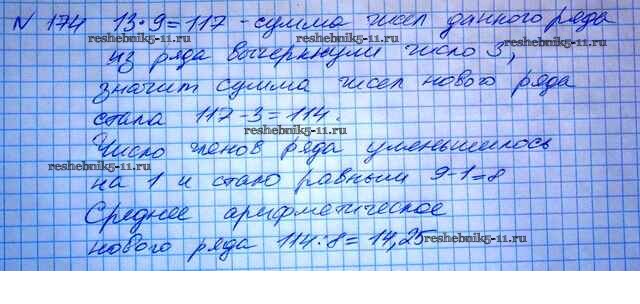 N 174 13·9=117 - сумма чисел данного ряда
reshebnik5-11.ru reshebnik5-11.ru
из ряда вычеркнули число 3,
reshebnik5-11.ru reshebnik5-11.ru
значит сумма чисел нового ряда
стала 117-3=114.
reshebnik5-11.ru
Число членов ряда уменьшилось
reshebnik5-11.ru
на 1 и стало равным 9-1=8
Среднее арифметическое
нового ряда 114:8=14,25
reshebnik5-11.ru